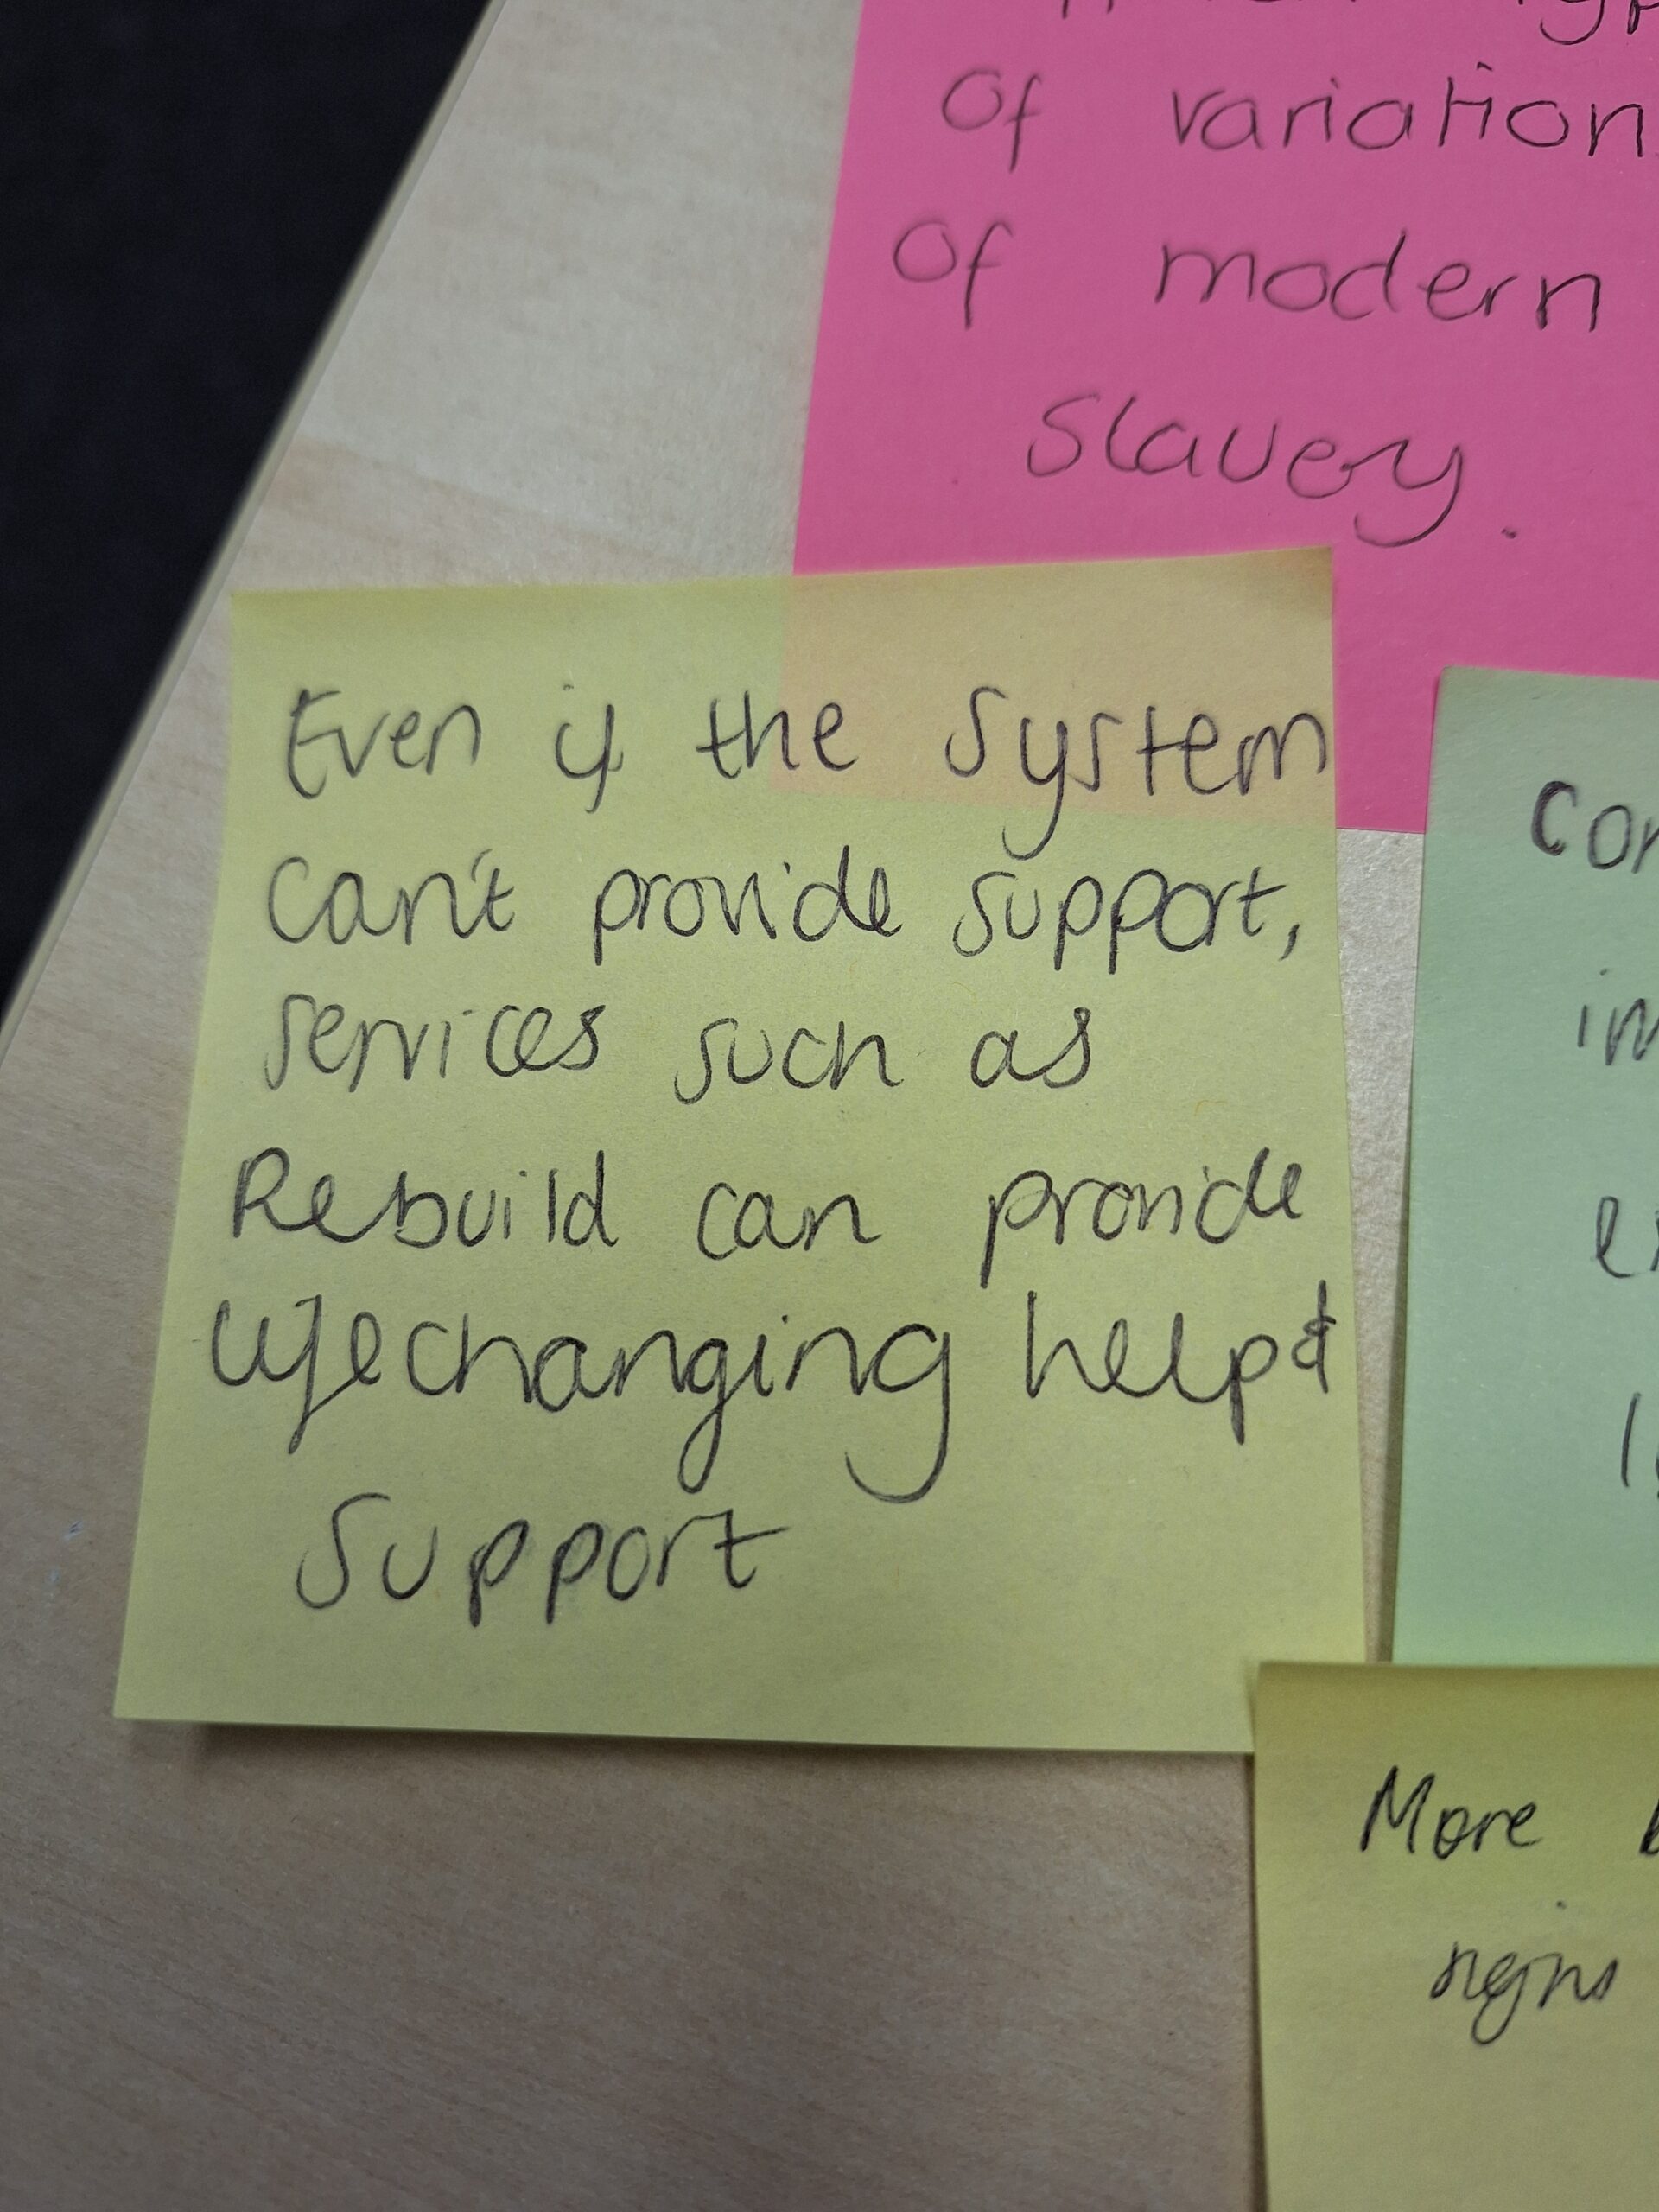 of variation
of modern
slavery.
Even if the system
can't provide support,
services such as
Rebuild can provide
lifechanging help &
support
More
signs